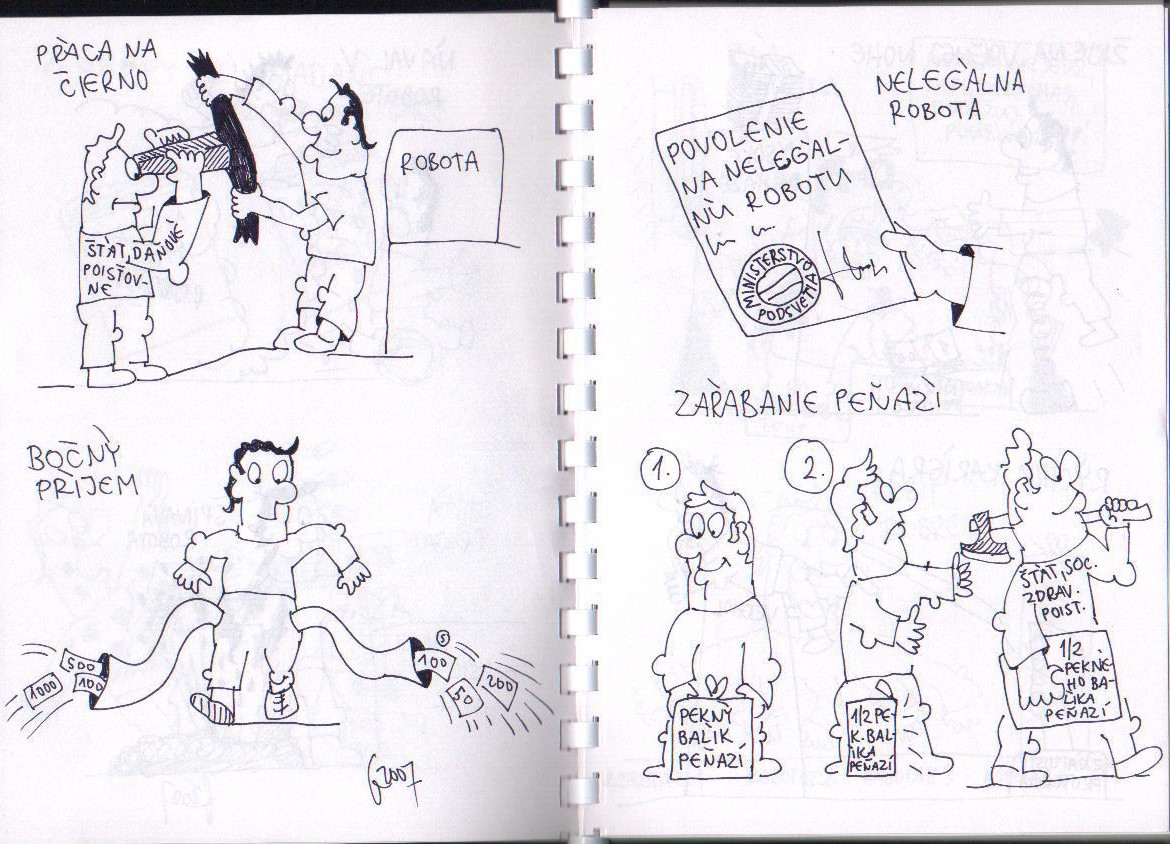 PRÀCA NA
ČIERNO
ROBOTA
ŠTÀT, DAŇOVÈ
POISŤOV-
NE
BOČNÝ
PRÌJEM
500
1000
100
5
100
50
200
2007
NELEGÀLNA
ROBOTA
POVOLENIE
NA NELEGÀL-
NÙ ROBOTU
MINISTERSTVO
PODSVETIA
ZAŘABANIE PEŇAZÌ
1.
2.
PEKNÝ
BALÌK
PEŇAZÍ
1/2 PE-
K. BAL-
ÌKA
PEŇAZÍ
ŠTÁT, SOC.
ZDRAV.
POIST.
1/2
PEKNÉ-
HO BA-
LÌKA
PEŇAZÍ